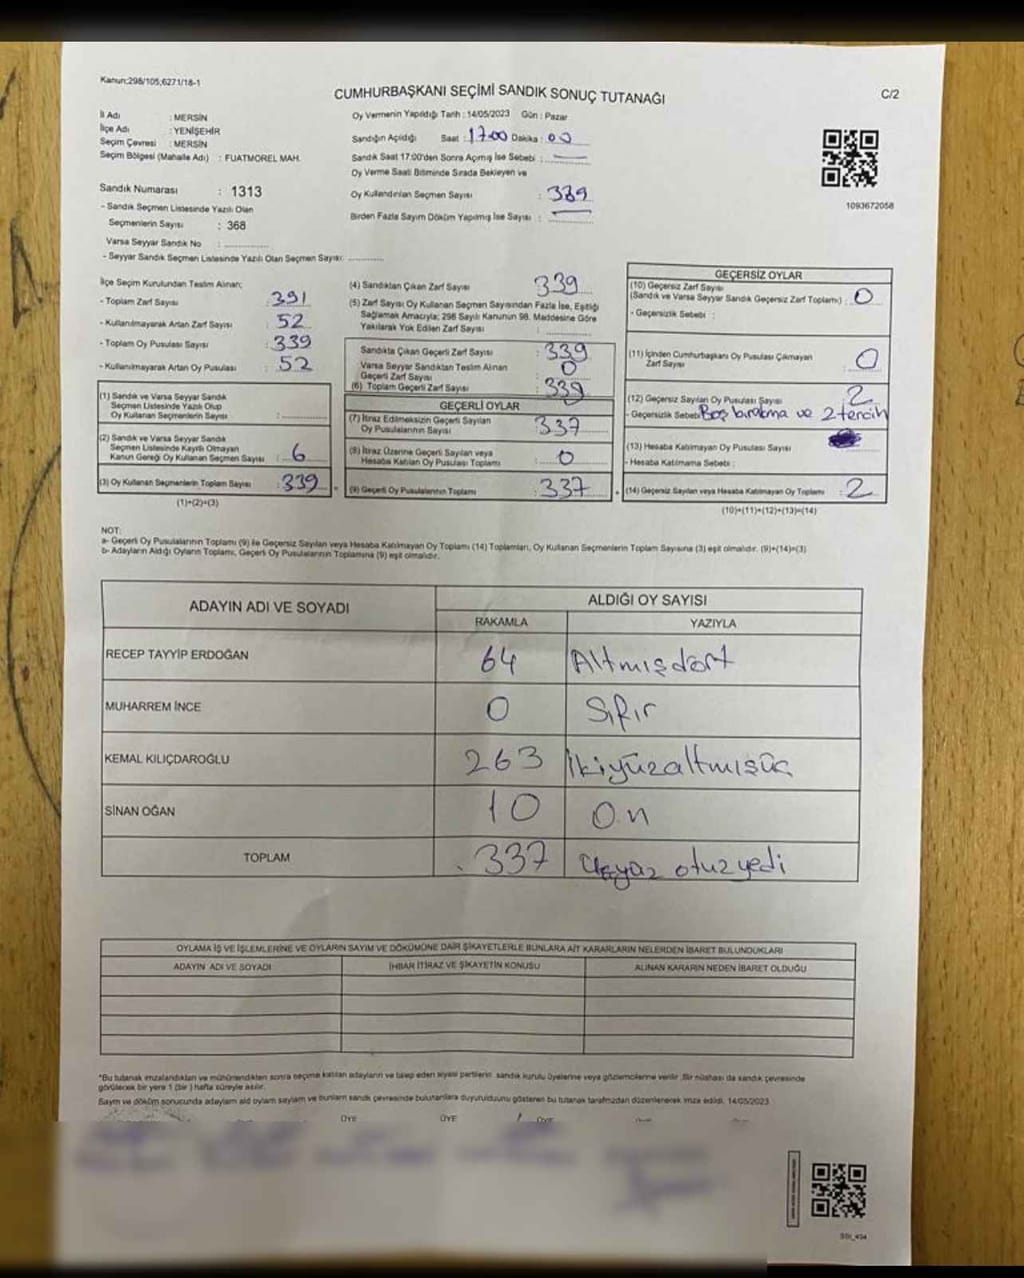 Kanun:298/105,6271/18-1
CUMHURBAŞKANI SEÇİMİ SANDIK SONUÇ TUTANAĞI
C/2
İl Adı : MERSİN
İlçe Adı : YENİŞEHİR
Seçim Çevresi : MERSİN
Seçim Bölgesi (Mahalle Adı) : FUATMOREL MAH.
Sandık Numarası : 1313
- Sandık Seçmen Listesinde Yazılı Olan
Seçmenlerin Sayısı : 368
Varsa Seyyar Sandık No : ..............
- Seyyar Sandık Seçmen Listesinde Yazılı Olan Seçmen Sayısı: ............
Oy Vermenin Yapıldığı Tarih : 14/05/2023 Gün : Pazar
Sandığın Açıldığı Saat : 17:00 Dakika : 00
Sandık Saat 17:00'den Sonra Açmış İse Sebebi :
Oy Verme Saati Bitiminde Sırada Bekleyen ve
Oy Kullandırılan Seçmen Sayısı : 339
Birden Fazla Sayım Döküm Yapılmış İse Sayısı :
1093672058
İlçe Seçim Kurulundan Teslim Alınan;
- Toplam Zarf Sayısı : 391
- Kullanılmayarak Artan Zarf Sayısı : 52
- Toplam Oy Pusulası Sayısı : 339
- Kullanılmayarak Artan Oy Pusulası : 52
(1) Sandık ve Varsa Seyyar Sandık
Seçmen Listesinde Yazılı Olup
Oy Kullanan Seçmenlerin Sayısı :
(2) Sandık ve Varsa Seyyar Sandık
Seçmen Listesinde Kayıtlı Olmayan
Kanun Gereği Oy Kullanan Seçmen Sayısı : 6
(3) Oy Kullanan Seçmenlerin Toplam Sayısı : 339
(1)+(2)=(3)
(4) Sandıktan Çıkan Zarf Sayısı : 339
(5) Zarf Sayısı Oy Kullanan Seçmen Sayısından Fazla İse, Eşitliği
Sağlamak Amacıyla; 298 Sayılı Kanunun 98. Maddesine Göre
Yakılarak Yok Edilen Zarf Sayısı :
Sandıkta Çıkan Geçerli Zarf Sayısı : 339
Varsa Seyyar Sandıktan Teslim Alınan
Geçerli Zarf Sayısı : 0
(6) Toplam Geçerli Zarf Sayısı : 339
GEÇERLİ OYLAR
(7) İtiraz Edilmeksizin Geçerli Sayılan
Oy Pusulalarının Sayısı : 337
(8) İtiraz Üzerine Geçerli Sayılan veya
Hesaba Katılan Oy Pusulası Toplamı : 0
(9) Geçerli Oy Pusulalarının Toplamı : 337
GEÇERSİZ OYLAR
(10) Geçersiz Zarf Sayısı
(Sandık ve Varsa Seyyar Sandık Geçersiz Zarf Toplamı) : 0
- Geçersizlik Sebebi :
(11) İçinden Cumhurbaşkanı Oy Pusulası Çıkmayan
Zarf Sayısı : 0
(12) Geçersiz Sayılan Oy Pusulası Sayısı : 2
- Geçersizlik Sebebi: Boş bırakma ve 2 tercih
(13) Hesaba Katılmayan Oy Pusulası Sayısı
- Hesaba Katılmama Sebebi :
(14) Geçersiz Sayılan veya Hesaba Katılmayan Oy Toplamı : 2
(10)+(11)+(12)+(13)=(14)
NOT:
a- Geçerli Oy Pusulalarının Toplamı (9) ile Geçersiz Sayılan veya Hesaba Katılmayan Oy Toplamı (14) Toplamları, Oy Kullanan Seçmenlerin Toplam Sayısına (3) eşit olmalıdır. (9)+(14)=(3)
b- Adayların Aldığı Oyların Toplamı, Geçerli Oy Pusulalarının Toplamına (9) eşit olmalıdır.
ADAYIN ADI VE SOYADI
ALDIĞI OY SAYISI
RAKAMLA YAZIYLA
RECEP TAYYİP ERDOĞAN 64 Altmışdört
MUHARREM İNCE 0 Sıfır
KEMAL KILIÇDAROĞLU 263 İkiyüzaltmışüç
SİNAN OĞAN 10 On
TOPLAM 337 Üçyüz otuzyedi
OYLAMA İŞ VE İŞLEMLERİNE VE OYLARIN SAYIM VE DÖKÜMÜNE DAİR ŞİKAYETLERLE BUNLARA AİT KARARLARIN NELERDEN İBARET BULUNDUKLARI
ADAYIN ADI VE SOYADI İHBAR İTİRAZ VE ŞİKAYETİN KONUSU ALINAN KARARIN NEDEN İBARET OLDUĞU
*Bu tutanak imzalandıktan ve mühürlendikten sonra seçime katılan adayların ve talep eden siyasi partilerin sandık kurulu üyelerine veya gözlemcilerine verilir. Bir nüshası da sandık çevresinde
görülecek bir yere 1 (bir) hafta süreyle asılır.
Sayım ve döküm sonucunda adayların aldığı oyların sayısını ve bunların sandık çevresinde bulunanlara duyurulduğunu gösteren bu tutanak tarafımızdan düzenlenerek imza edildi. 14/05/2023
ÜYE ÜYE ÜYE